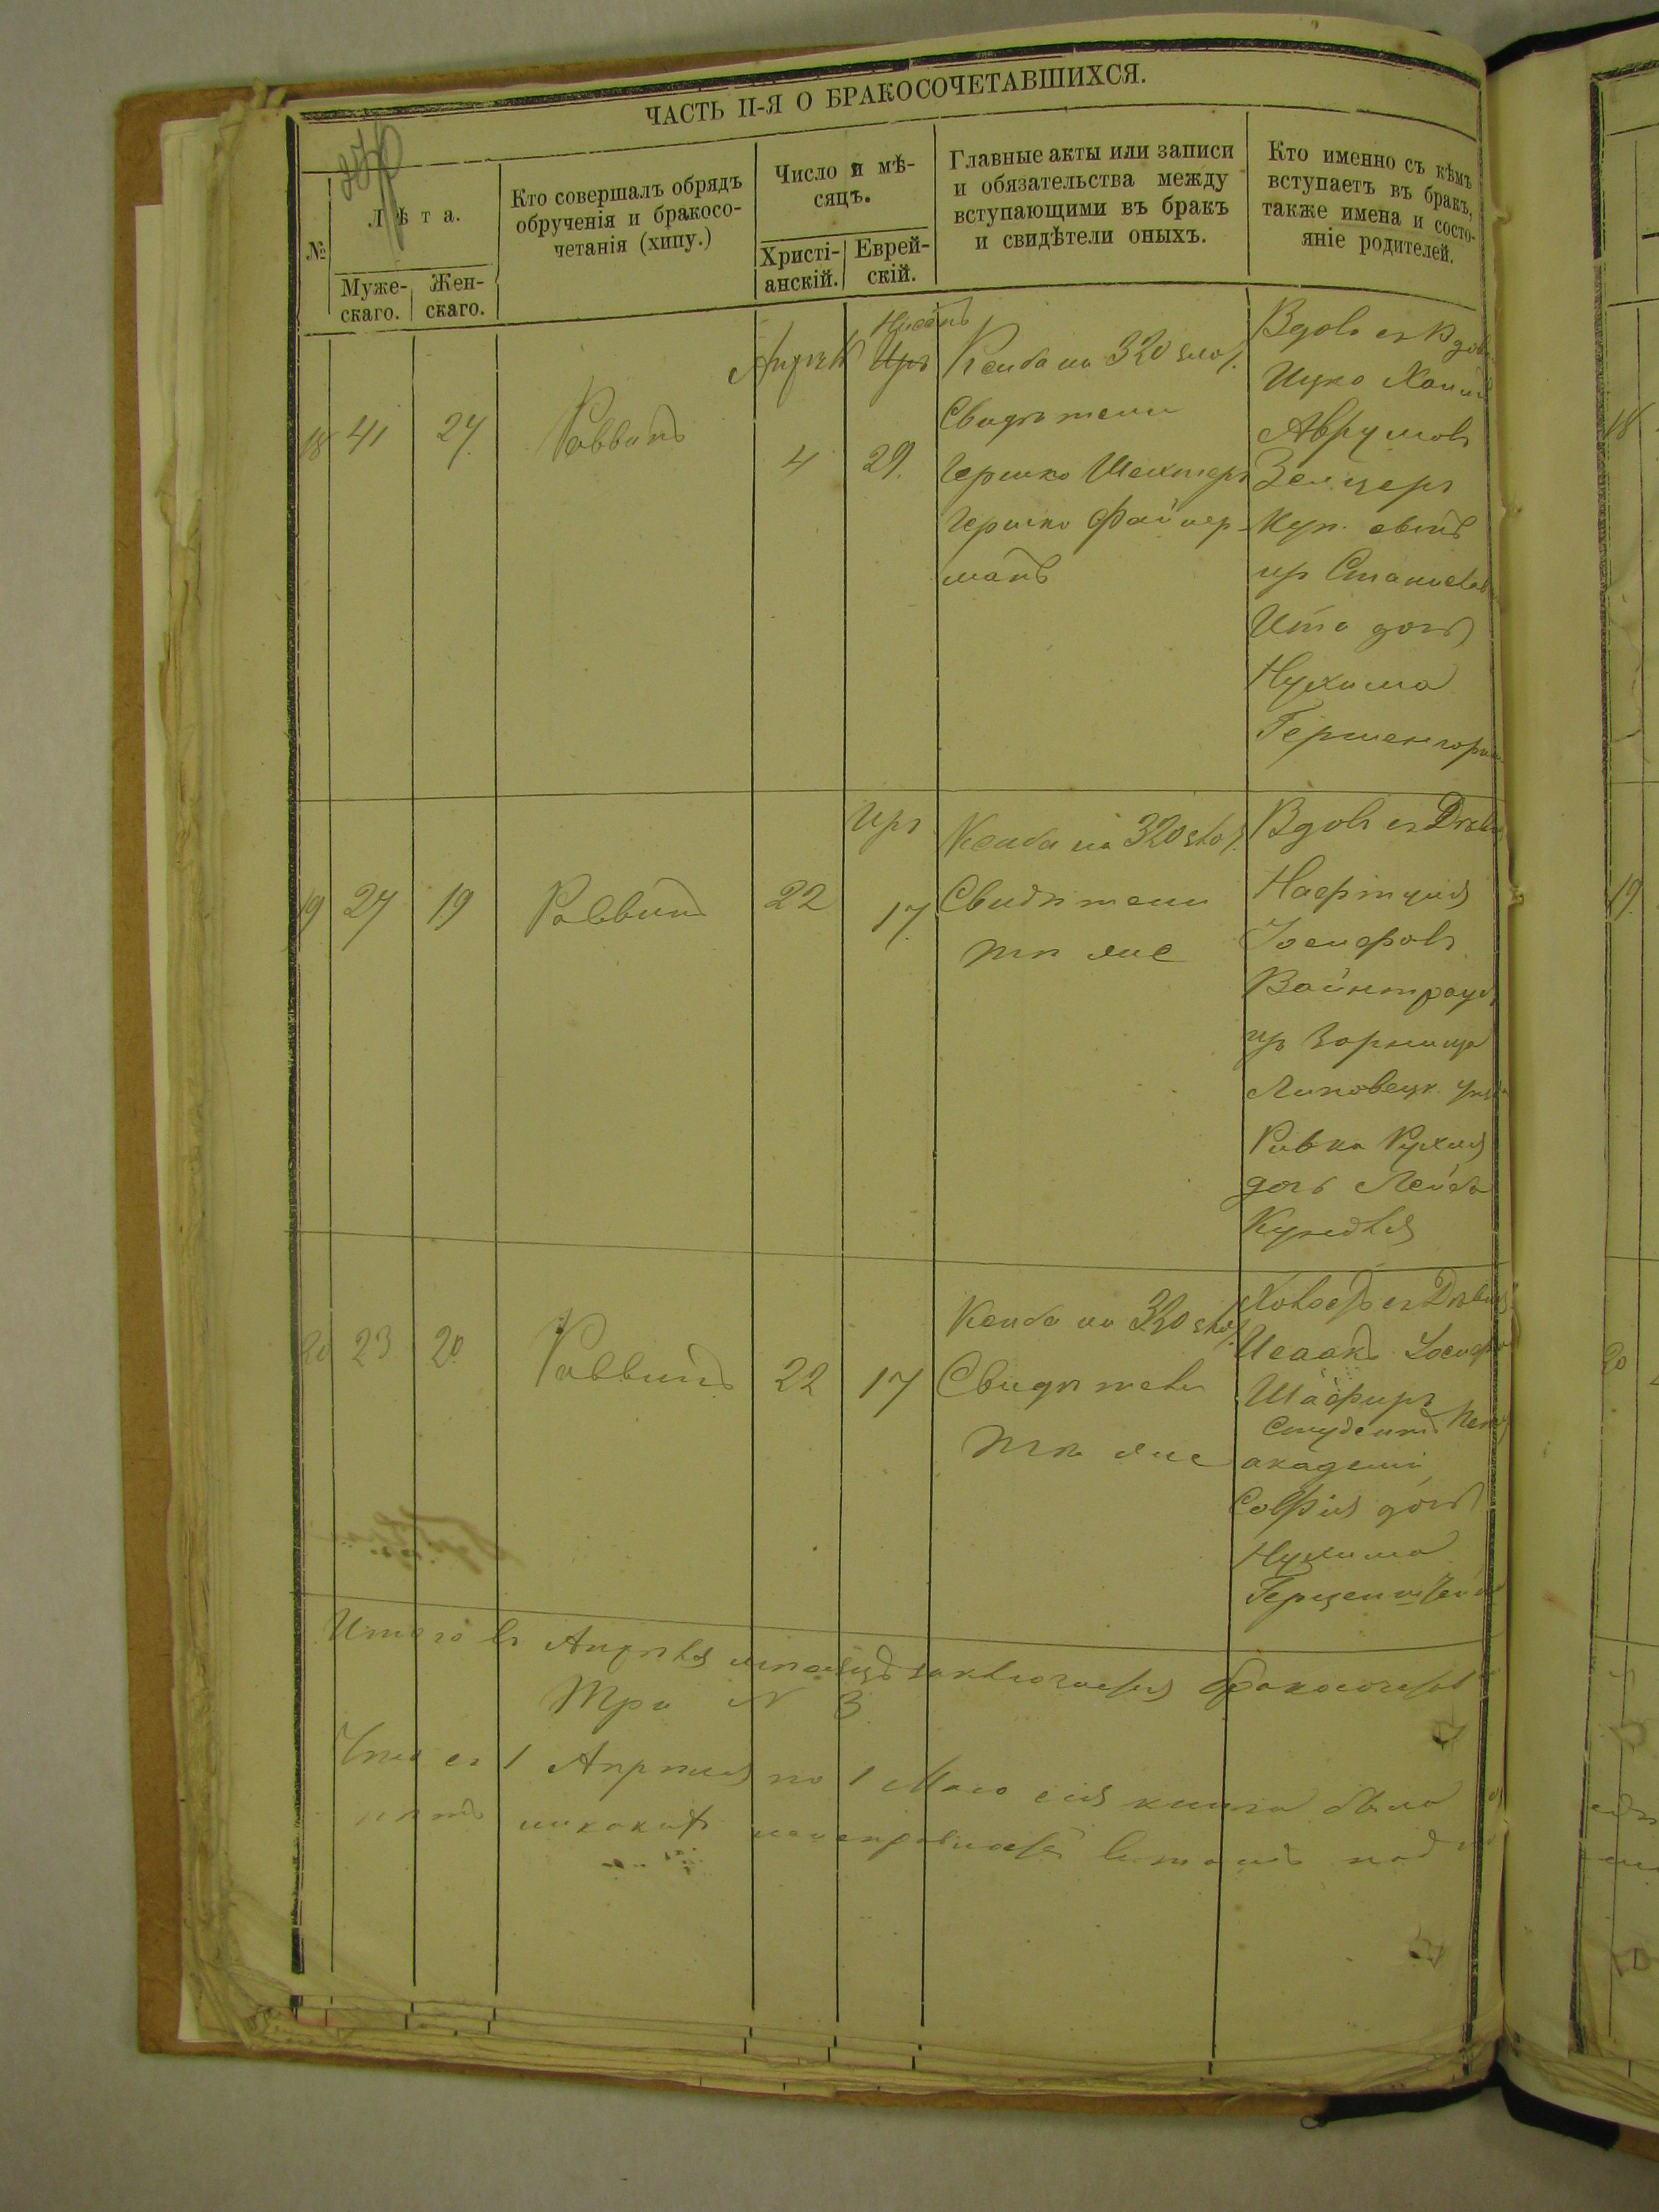 ЧАСТЬ II-Я О БРАКОСОЧЕТАВШИХСЯ.
№
Лѣта.
Муже-
скаго.
Жен-
скаго.
Кто совершалъ обрядъ
обрученія и бракосо-
четанія (хипу.)
Число и мѣ-
сяцъ.
Христі-
анскій.
Еврей-
скій.
Главные акты или записи
и обязательства между
вступающими въ бракъ
и свидѣтели оныхъ.
Кто именно съ кѣмъ
вступаетъ въ бракъ,
также имена и состо-
яніе родителей.
18
41
24
Раввинъ
4
Нисанъ
Иръ
29.
на 320
Свидѣтели
Гершко Шехтеръ
Гершко Файнер-
манъ
Вдов. съ Вдов
Ицко Хаим
Аврумовъ
Зельцеръ
Куп. сынъ
Ита дочь
Нухима
Гершенгорн
19
27
19
Раввинъ
22
Иръ
17
на 320
Свидѣтели
тѣ же
Вдов съ Дѣв
Нафтула
Іосифовъ
Вайнтрауб
изъ Зорница
Липовецк. уѣз
Ривка Рухля
дочь Лейба
20
23
20
Раввинъ
22
17
на 320
Свидѣтели
тѣ же
съ Дѣв
Исаакъ Іосифов
Шафиръ
Студентъ
академіи
Софія дочь
Нухима
Герценштейн
Итого въ Апрѣля бракосочет
Три № 3
съ 1 Апрѣля по 1 Мая сія книга была
никакихъ